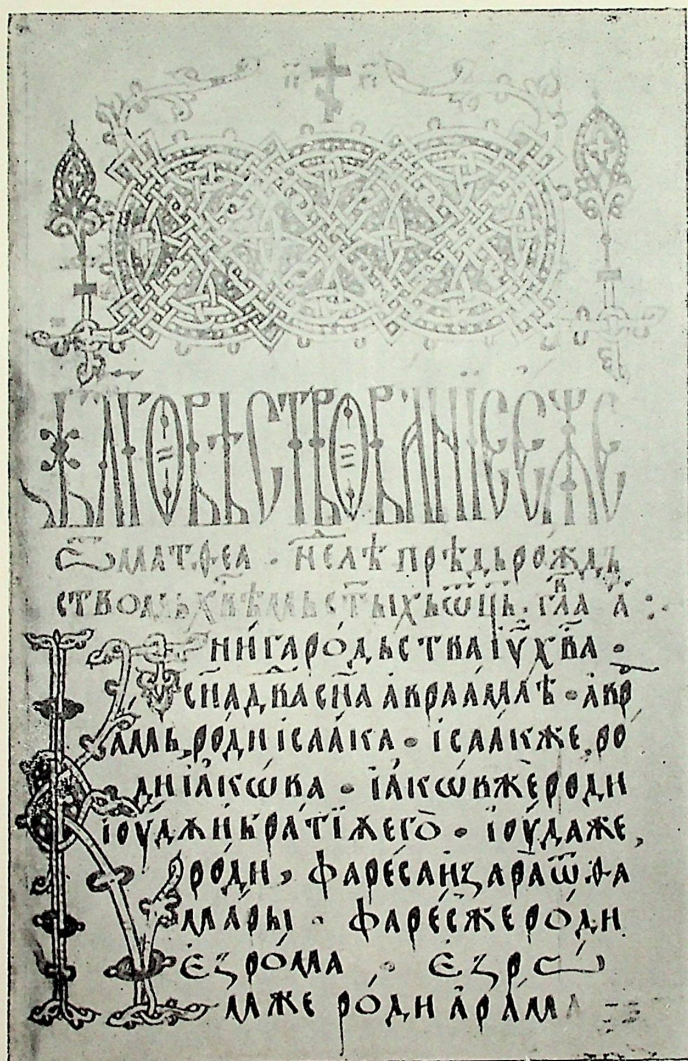 БЛГОВѢСТВОВАНЇЕ ЕЖЕ
Ѿ МАТ.ѲЕА · НЕ҃Лѣ ПРѢДЬ РО́ЖДЬ
СТВОМЬ Х҃ВѢМЬ С҃ТЫХЬ Ѿ҃ЦЬ · ГЛ҃А А҃ :·
КНИ́ГА РО́ДЬСТВА І҆У҃ Х҃ВА ·
С҃НА Д҃ВА С҃НА АВРААМЛѢ · АВР
АМЬ РО́ДИ ІСАА́КА · ІСАА́К ЖЕ РО
ДИ ІА҆КѠВА · ІА҆КѠВ ЖЕ РОДИ
ІОУ҆ДѪ И҆ БРА́ТЇѪ ЕГО̀ · ЇОУ҆ДА ЖЕ,
РО́ДИ, ФАРЕ́СА И҆ ЗАРА̀ Ѿ ѲА
МА́РЫ · ФАРЕ́С ЖЕ РО́ДИ
ЕЗРО́МА · ЕЗРѠ
М ЖЕ РО́ДИ А҆РА́МА